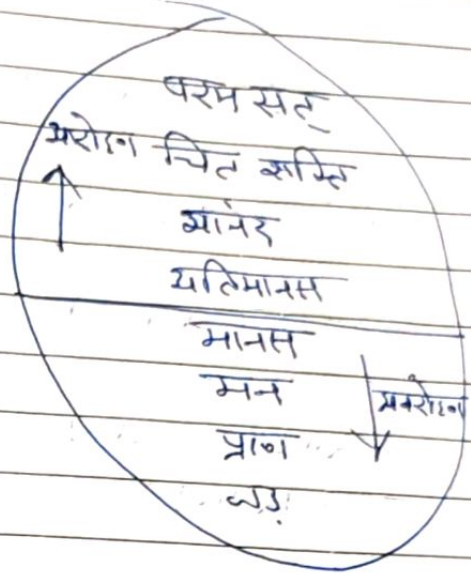 परम सत्
आरोहण चित शक्ति
आनंद
अतिमानस
मानस
मन
प्राण
अवरोहण
जड़